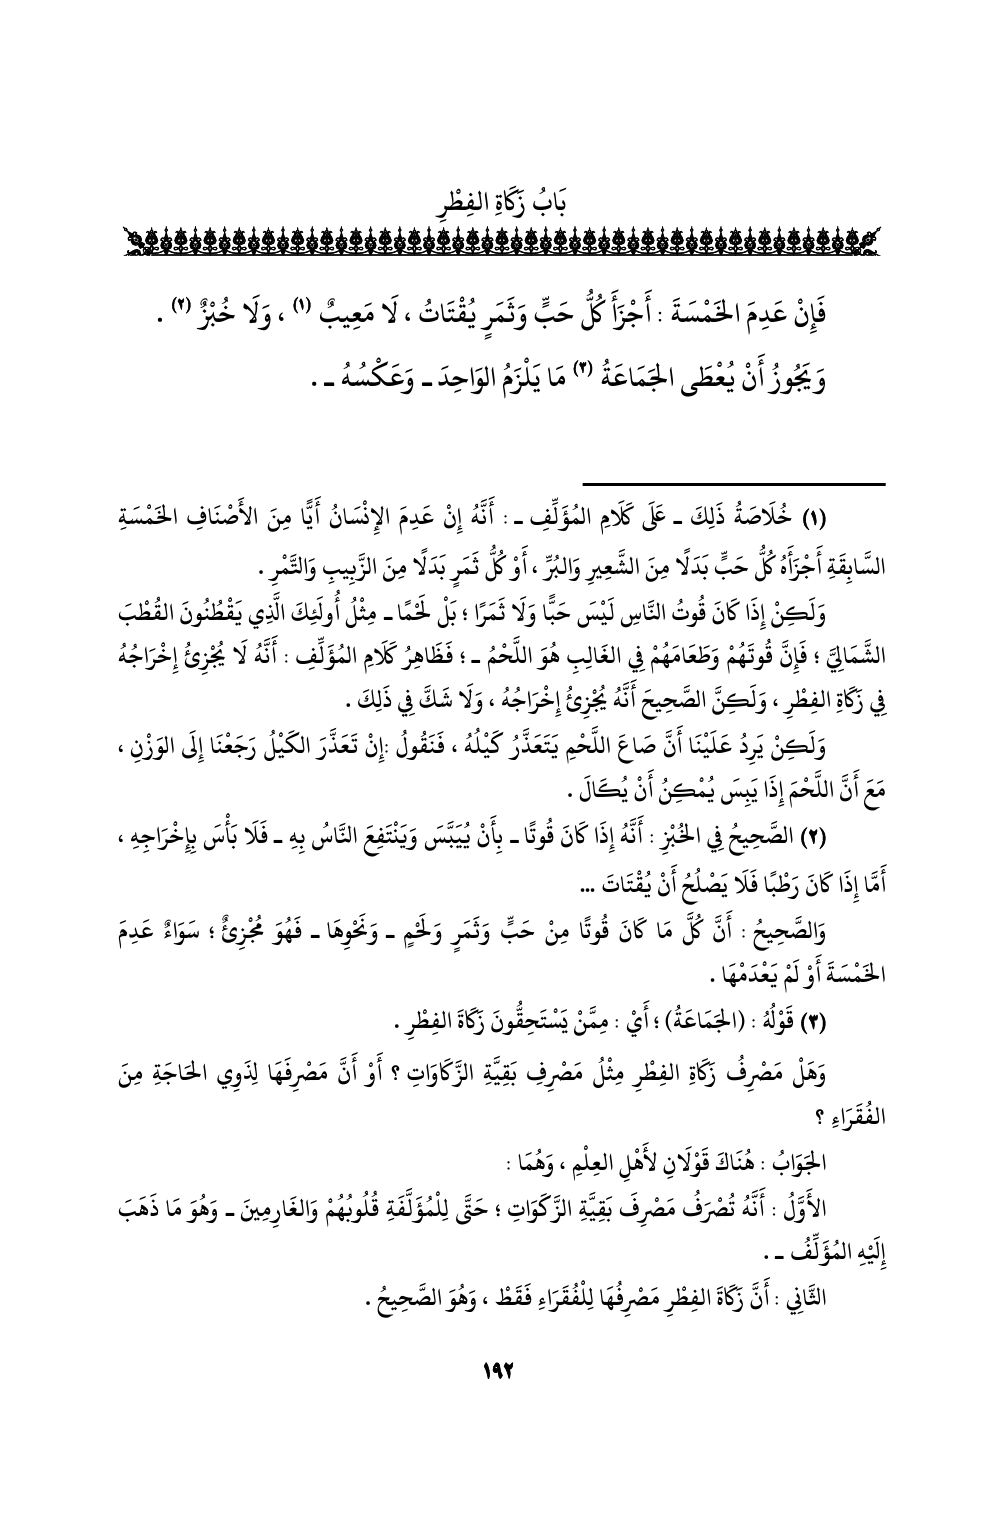 بَابُ زَكَاةِ الفِطْرِ
فَإِنْ عَدِمَ الخَمْسَةَ : أَجْزَأَ كُلُّ حَبٍّ وَثَمَرٍ يُقْتَاتُ ، لَا مَعِيبٌ (١) ، وَلَا خُبْزٌ (٢) .
وَيَجُوزُ أَنْ يُعْطَى الجَمَاعَةُ (٣) مَا يَلْزَمُ الوَاحِدَ ـ وَعَكْسُهُ ـ .
(١) خُلَاصَةُ ذَلِكَ ـ عَلَى كَلَامِ المُؤَلِّفِ ـ : أَنَّهُ إِنْ عَدِمَ الإِنْسَانُ أَيًّا مِنَ الأَصْنَافِ الخَمْسَةِ
السَّابِقَةِ أَجْزَأَهُ كُلُّ حَبٍّ بَدَلًا مِنَ الشَّعِيرِ وَالبُرِّ ، أَوْ كُلُّ ثَمَرٍ بَدَلًا مِنَ الزَّبِيبِ وَالتَّمْرِ .
وَلَكِنْ إِذَا كَانَ قُوتُ النَّاسِ لَيْسَ حَبًّا وَلَا ثَمَرًا ؛ بَلْ لَحْمًا ـ مِثْلُ أُولَئِكَ الَّذِي يَقْطُنُونَ القُطْبَ
الشَّمَالِيَّ ؛ فَإِنَّ قُوتَهُمْ وَطَعَامَهُمْ فِي الغَالِبِ هُوَ اللَّحْمُ ـ ؛ فَظَاهِرُ كَلَامِ المُؤَلِّفِ : أَنَّهُ لَا يُجْزِئُ إِخْرَاجُهُ
فِي زَكَاةِ الفِطْرِ ، وَلَكِنَّ الصَّحِيحَ أَنَّهُ يُجْزِئُ إِخْرَاجُهُ ، وَلَا شَكَّ فِي ذَلِكَ .
وَلَكِنْ يَرِدُ عَلَيْنَا أَنَّ صَاعَ اللَّحْمِ يَتَعَذَّرُ كَيْلُهُ ، فَنَقُولُ :إِنْ تَعَذَّرَ الكَيْلُ رَجَعْنَا إِلَى الوَزْنِ ،
مَعَ أَنَّ اللَّحْمَ إِذَا يَبِسَ يُمْكِنُ أَنْ يُكَالَ .
(٢) الصَّحِيحُ فِي الخُبْزِ : أَنَّهُ إِذَا كَانَ قُوتًا ـ بِأَنْ يُيَبَّسَ وَيَنْتَفِعَ النَّاسُ بِهِ ـ فَلَا بَأْسَ بِإِخْرَاجِهِ ،
أَمَّا إِذَا كَانَ رَطْبًا فَلَا يَصْلُحُ أَنْ يُقْتَاتَ ...
وَالصَّحِيحُ : أَنَّ كُلَّ مَا كَانَ قُوتًا مِنْ حَبٍّ وَثَمَرٍ وَلَحْمٍ ـ وَنَحْوِهَا ـ فَهُوَ مُجْزِئٌ ؛ سَوَاءٌ عَدِمَ
الخَمْسَةَ أَوْ لَمْ يَعْدَمْهَا .
(٣) قَوْلُهُ : (الجَمَاعَةُ) ؛ أَيْ : مِمَّنْ يَسْتَحِقُّونَ زَكَاةَ الفِطْرِ .
وَهَلْ مَصْرِفُ زَكَاةِ الفِطْرِ مِثْلُ مَصْرِفِ بَقِيَّةِ الزَّكَاوَاتِ ؟ أَوْ أَنَّ مَصْرِفَهَا لِذَوِي الحَاجَةِ مِنَ
الفُقَرَاءِ ؟
الجَوَابُ : هُنَاكَ قَوْلَانِ لأَهْلِ العِلْمِ ، وَهُمَا :
الأَوَّلُ : أَنَّهُ تُصْرَفُ مَصْرِفَ بَقِيَّةِ الزَّكَوَاتِ ؛ حَتَّى لِلْمُؤَلَّفَةِ قُلُوبُهُمْ وَالغَارِمِينَ ـ وَهُوَ مَا ذَهَبَ
إِلَيْهِ المُؤَلِّفُ ـ .
الثَّانِي : أَنَّ زَكَاةَ الفِطْرِ مَصْرِفُهَا لِلْفُقَرَاءِ فَقَطْ ، وَهُوَ الصَّحِيحُ .
١٩٢